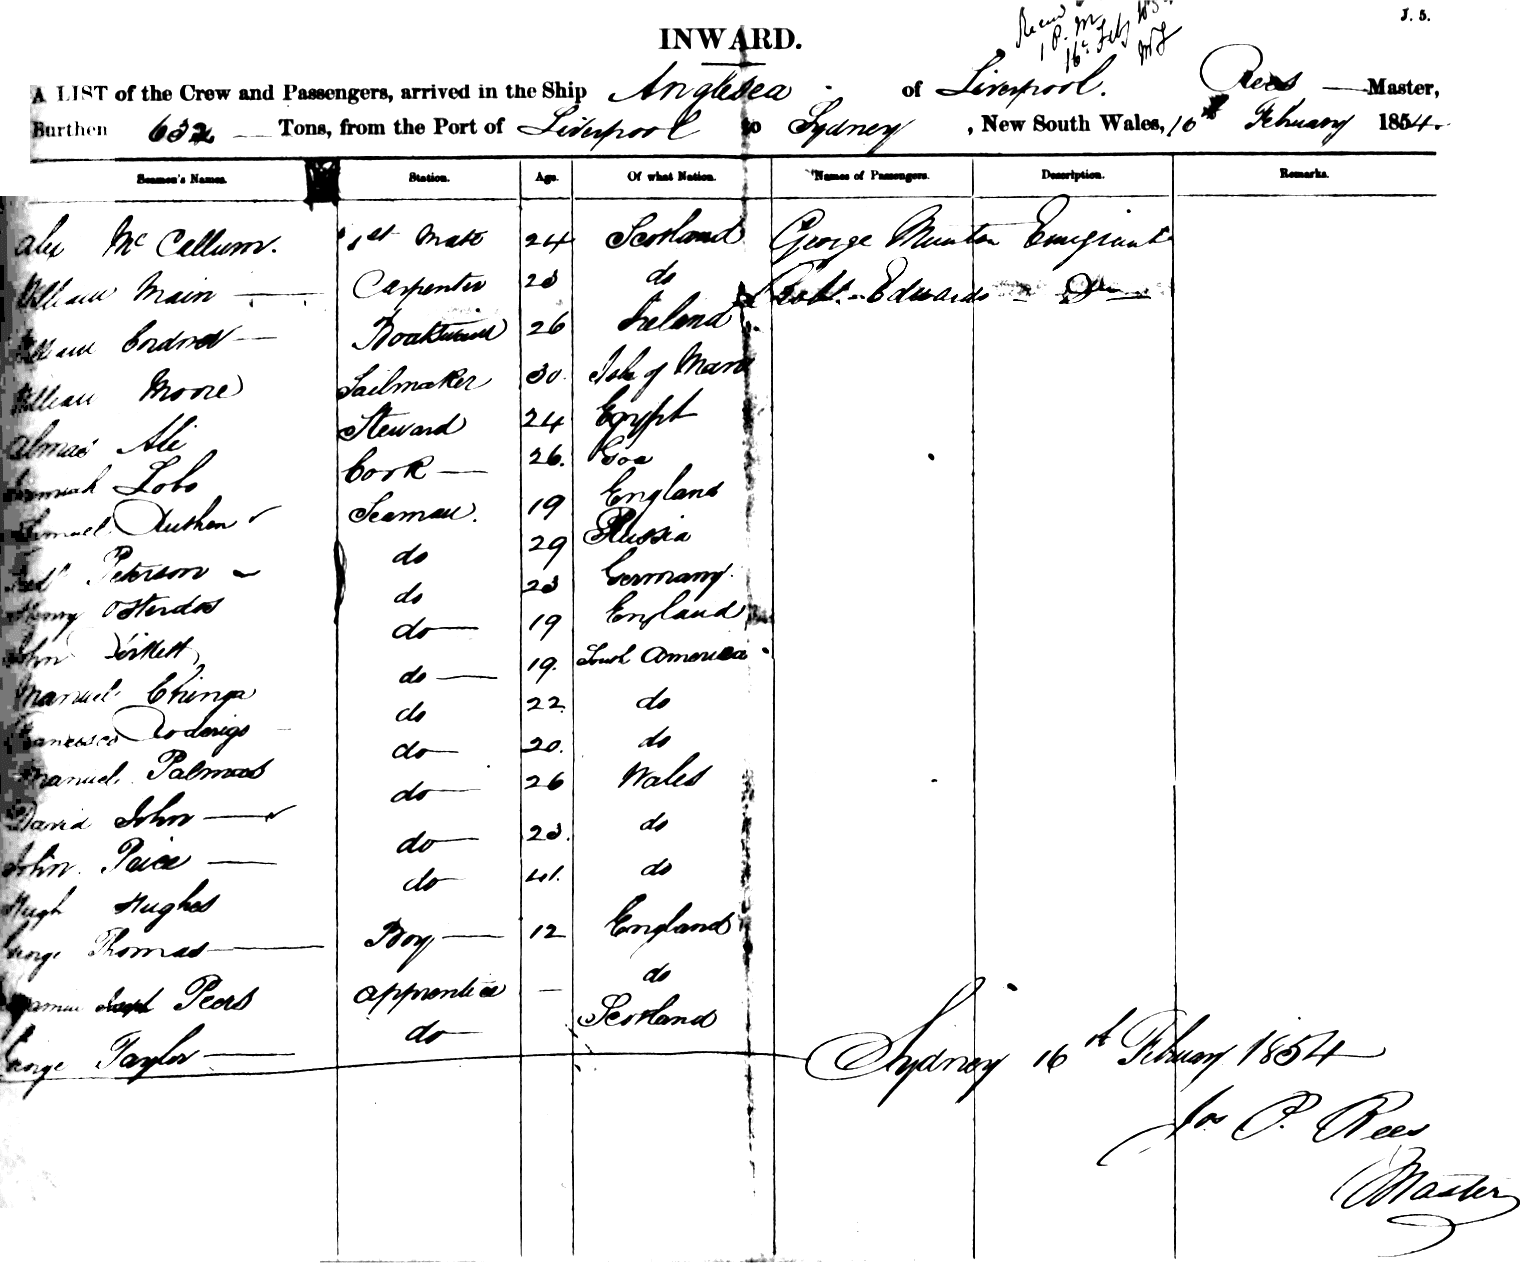 J. 5.
1 P. M
16th Feb
INWARD.
A LIST of the Crew and Passengers, arrived in the Ship Anglesea of Liverpool. Rees Master,
Burthen 632 Tons, from the Port of Liverpool to Sydney, New South Wales, 16th February 1854.
Seamen's Names. Station. Age. Of what Nation. Names of Passengers. Description. Remarks.
Alex Mc Callum. 1st Mate 24 Scotland George Munton Emigrant
William Main Carpenter 23 do Robt. Edwards Do
William Boatswain 26 Ireland
William Moore Sailmaker 30 Isle of Man
Almas Ali Steward 24 Egypt
Jeremiah Lobo Cook 26. Goa
Samuel Seaman. 19 England
Fredk Peterson do 29 Russia
Henry Osterdos do 23 Germany.
John do 19 England
Manuel Chinga do 19. South America
Francisco Roderigo do 22 do
Manuel Palmas do 20. do
David John do 26 Wales
John Price do 23. do
Hugh Hughes do 41. do
George Thomas Boy 12 England
Peers Apprentice — do
George Taylor do Scotland
Sydney 16th February 1854
Jos P. Rees
Master